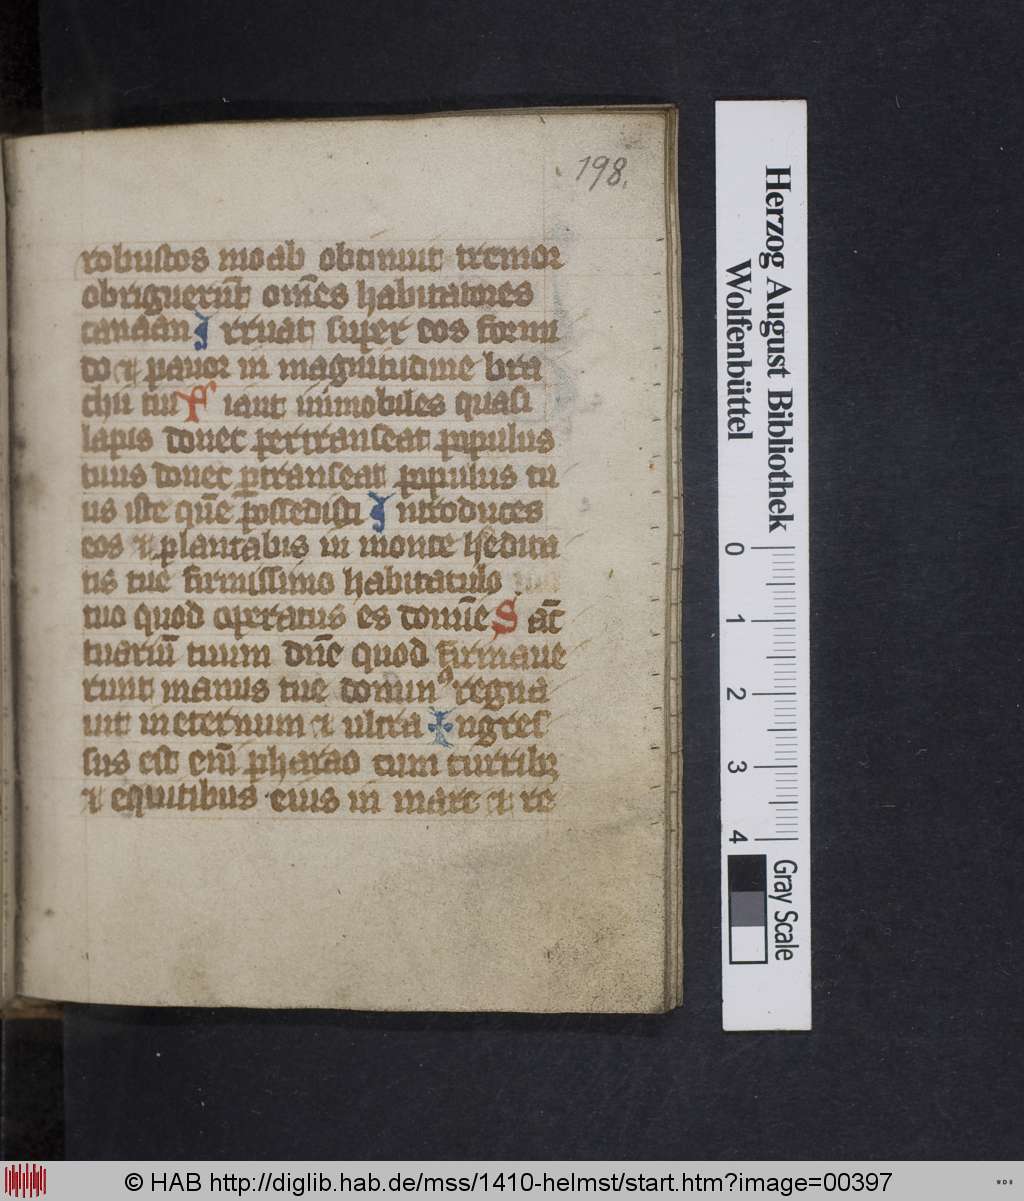 198.
robustos moab obtinuit tremor
obriguerūt om̄es habitatores
canaan Irruat super eos formi
do et pavor in magnitudine bra
chii tui Fiant inmobiles quasi
lapis donec pertranseat populus
tuus donec ꝑtranseat populus tu
us iste quē possedisti Introduces
eos et plantabis in monte h̄edita
tis tue firmissimo habitaculo
tuo quod operatus es domīe Sāc
tuariū tuum dn̄e quod firmaue
runt manus tue domin⁹ regna
uit in eternum et ultra Ingres
sus est enī pharao cum curribꝫ
et equitibus eius in mare et re
Herzog August Bibliothek
Wolfenbüttel
0 1 2 3 4
Gray Scale
© HAB http://diglib.hab.de/mss/1410-helmst/start.htm?image=00397